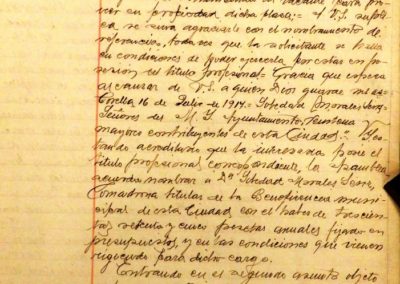 veer en propiedad dicha plaza;= A V.S. suplica
ca se sirva agraciarle con el nombramiento de
referencia, toda vez que la solicitante se halla
en condiciones de poder ejercerla por estar en po
sesión del título profesional= Gracia que espera
alcanzar de V.S. a quien Dios guarde m. as
Corella 16 de Julio de 1917.= Soledad Morales Sanz
Señores del M. Y. Ayuntamiento,
mayores contribuyentes de esta Ciudad". Y es
tando acreditado que la interesada posee el
título profesional correspondiente, la
acuerda nombrar a Dª Soledad Morales
Comadrona titular de la Beneficencia muni
cipal de esta Ciudad con el haber de trescien
tas veinte y cinco pesetas anuales fijado en
presupuestos, y en las condiciones que vienen
rigiendo para dicho cargo.
Entrando en el segundo asunto objeto